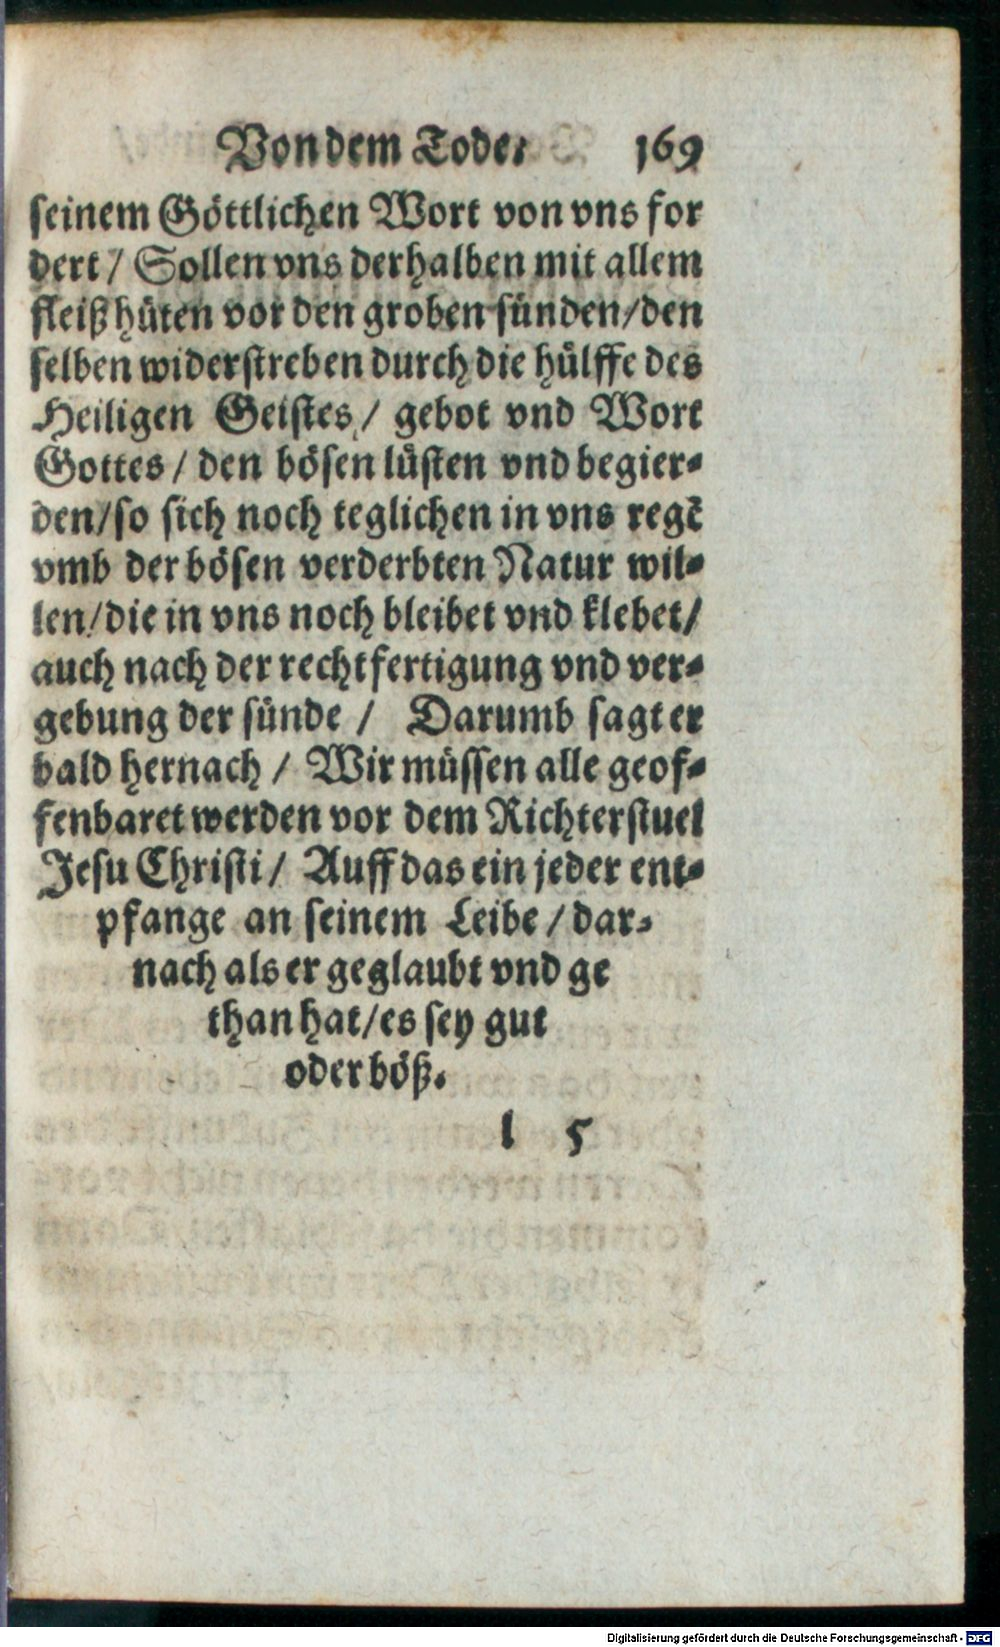 Von dem Tode. 169
seinem Göttlichen Wort von vns for
dert / Sollen vns derhalben mit allem
fleiß hüten vor den groben sünden / den
selben widerstreben durch die hülffe des
Heiligen Geistes / gebot vnd Wort
Gottes / den bösen lüsten vnd begier-
den / so sich noch teglichen in vns regē
vmb der bösen verderbten Natur wil-
len / die in vns noch bleibet vnd klebet /
auch nach der rechtfertigung vnd ver-
gebung der sünde / Darumb sagt er
bald hernach / Wir müssen alle geof-
fenbaret werden vor dem Richterstuel
Jesu Christi / Auff das ein jeder ent-
pfange an seinem Leibe / dar-
nach als er geglaubt vnd ge
than hat / es sey gut
oder böß.
l 5
Digitalisierung gefördert durch die Deutsche Forschungsgemeinschaft - DFG